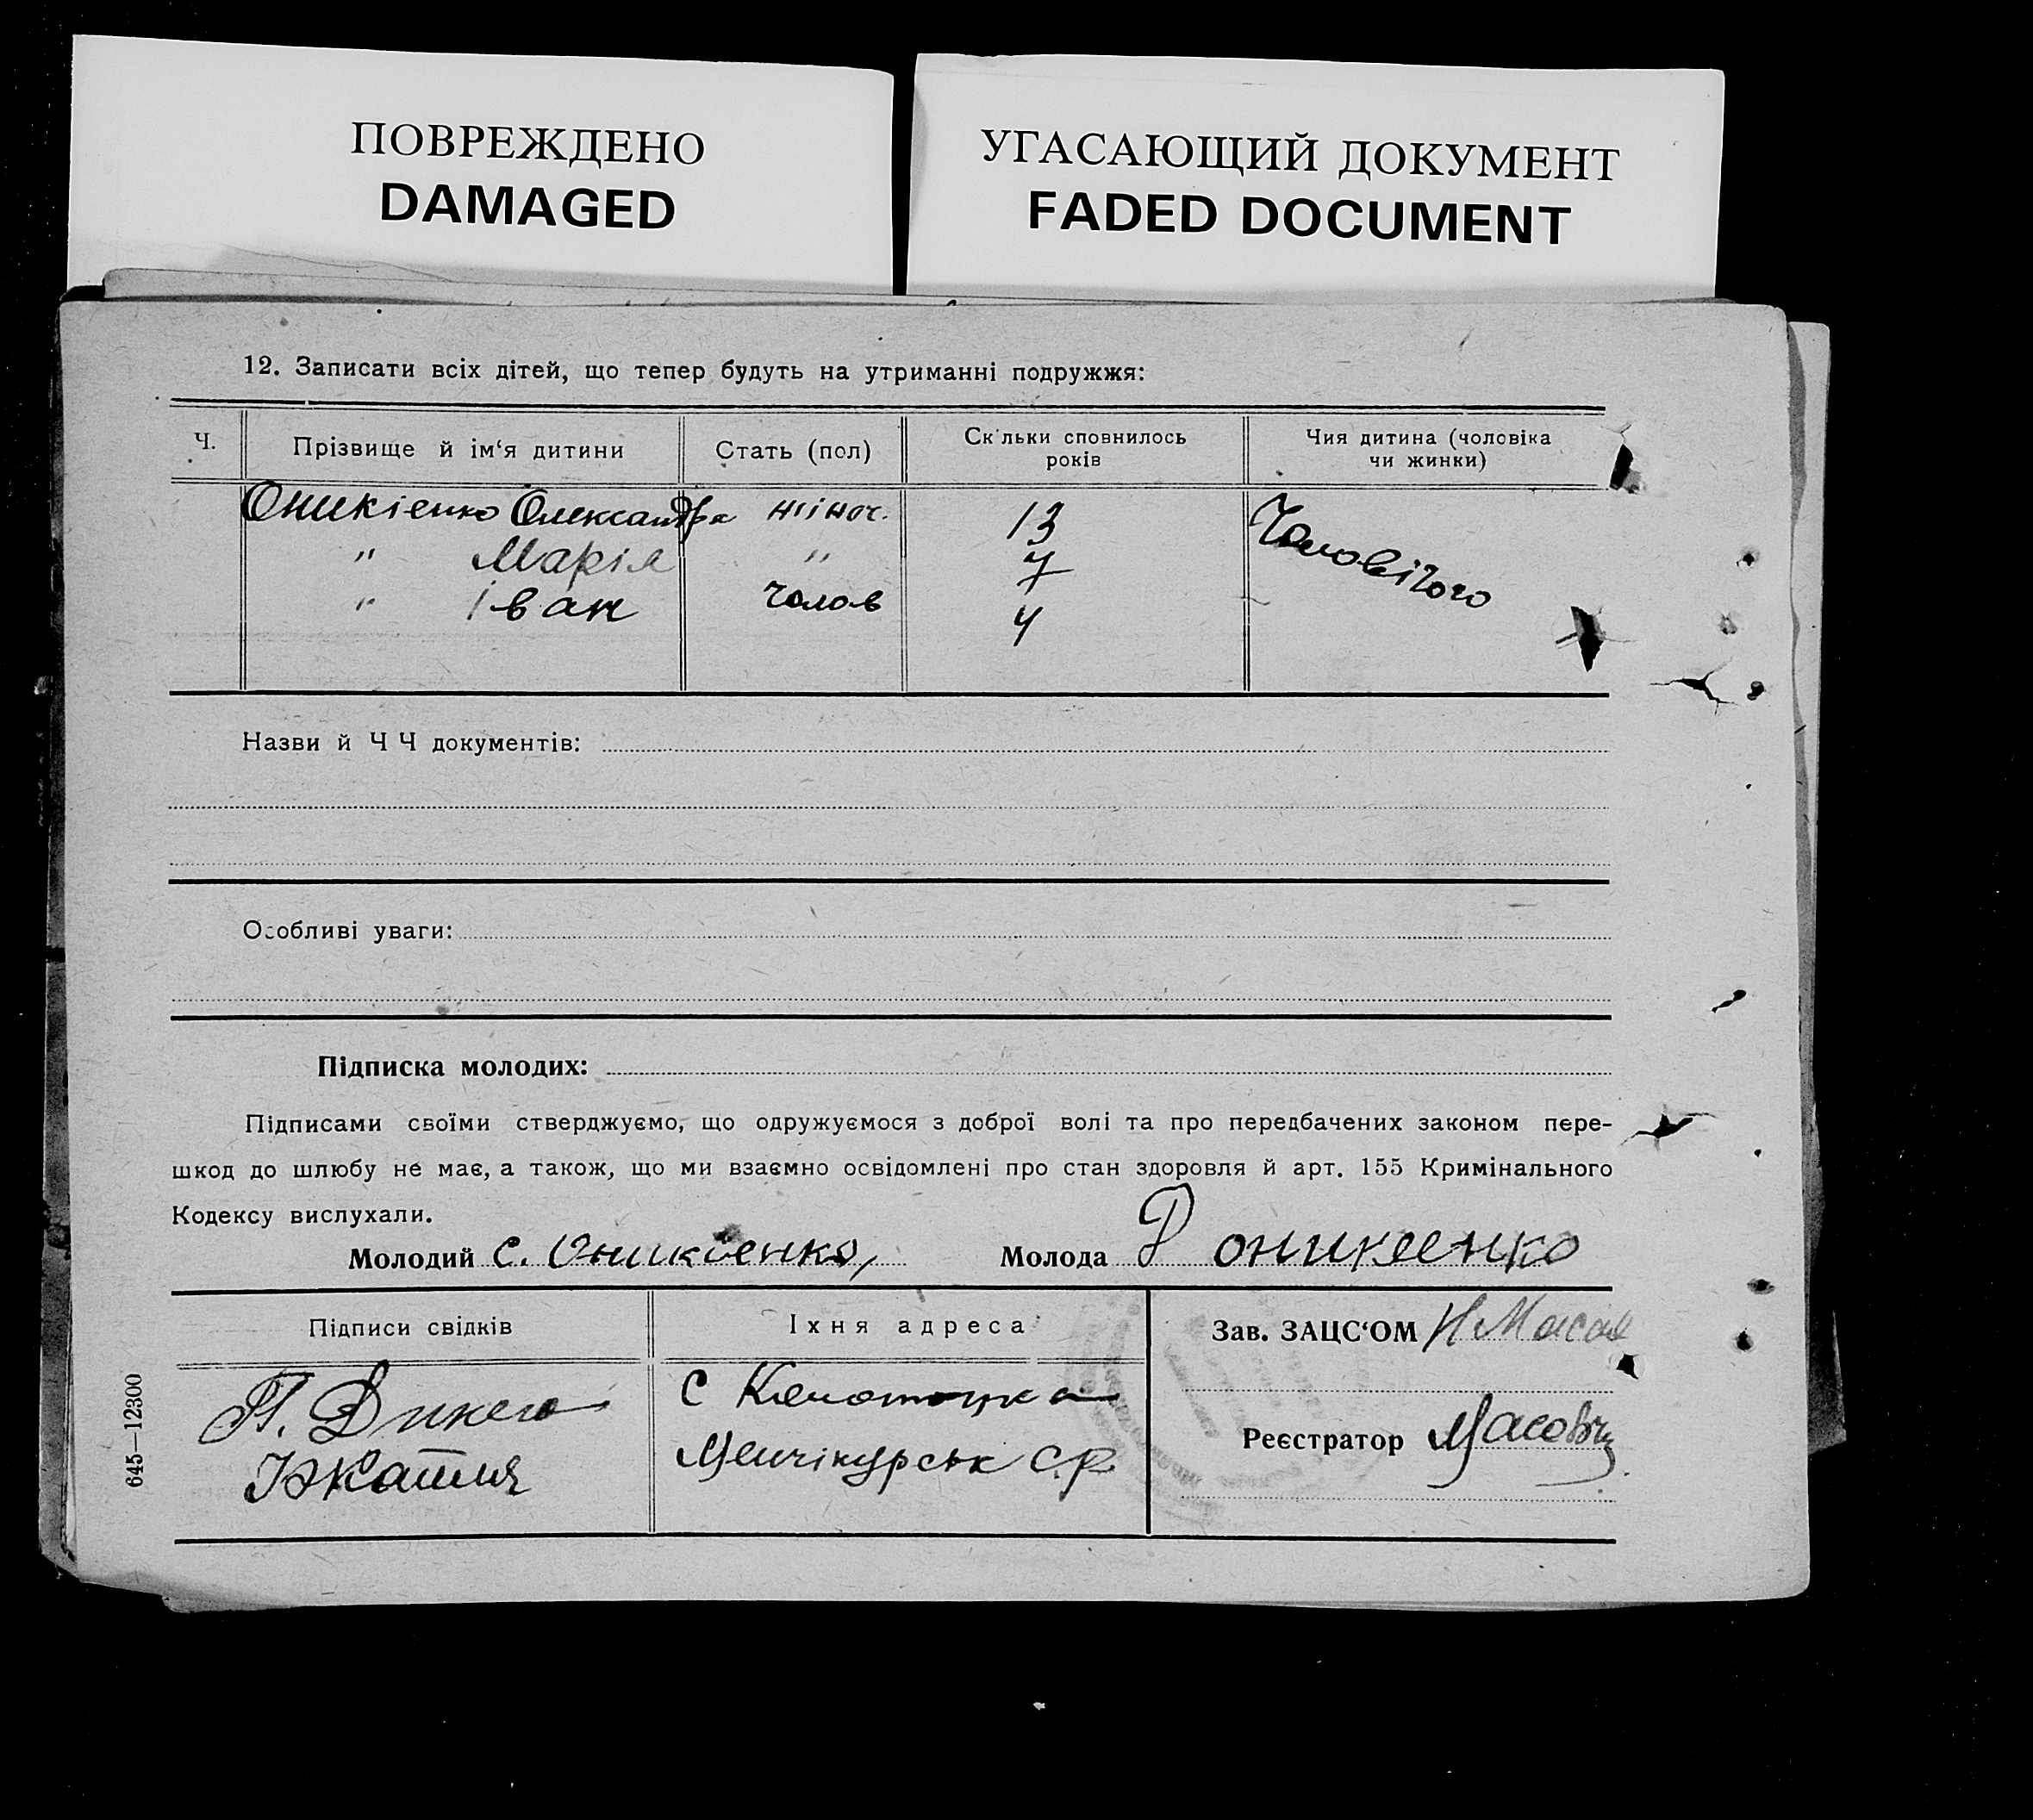 ПОВРЕЖДЕНО
DAMAGED
УГАСАЮЩИЙ ДОКУМЕНТ
FADED DOCUMENT
12. Записати всіх дітей, що тепер будуть на утриманні подружжя:
Ч. Прізвище й ім‘я дитини Стать (пол) Скільки сповнилось років Чия дитина (чоловіка чи жинки)
Оникієнко Олександра жіноч. 13 Чоловічого
" Марія " 7
" Іван чолов 4
Назви й Ч Ч документів:
Особливі уваги:
Підписка молодих:
Підписами своїми стверджуємо, що одружуємося з доброї волі та про передбачених законом пере-
шкод до шлюбу не має, а також, що ми взаємно освідомлені про стан здоровля й арт. 155 Кримінального
Кодексу вислухали.
Молодий С. Оникієнко, Молода оникеенко
Підписи свідків Їхня адреса Зав. ЗАЦС‘ОМ
П. с
Реєстратор
с.р.
645—12300